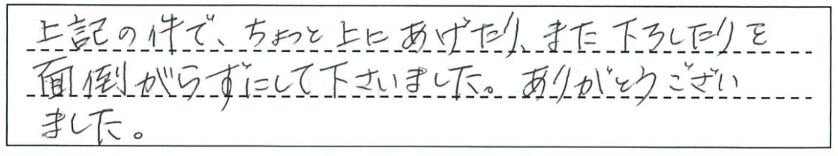 上記の件で、ちょっと上にあげたり、また下ろしたりを
面倒がらずにして下さいました。ありがとうござい
ました。